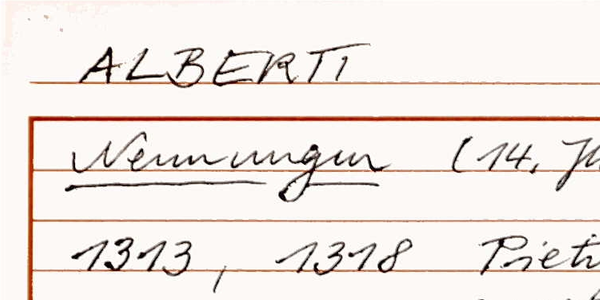 ALBERTI
Nennungen (14. Jh
1313, 1318 Piet